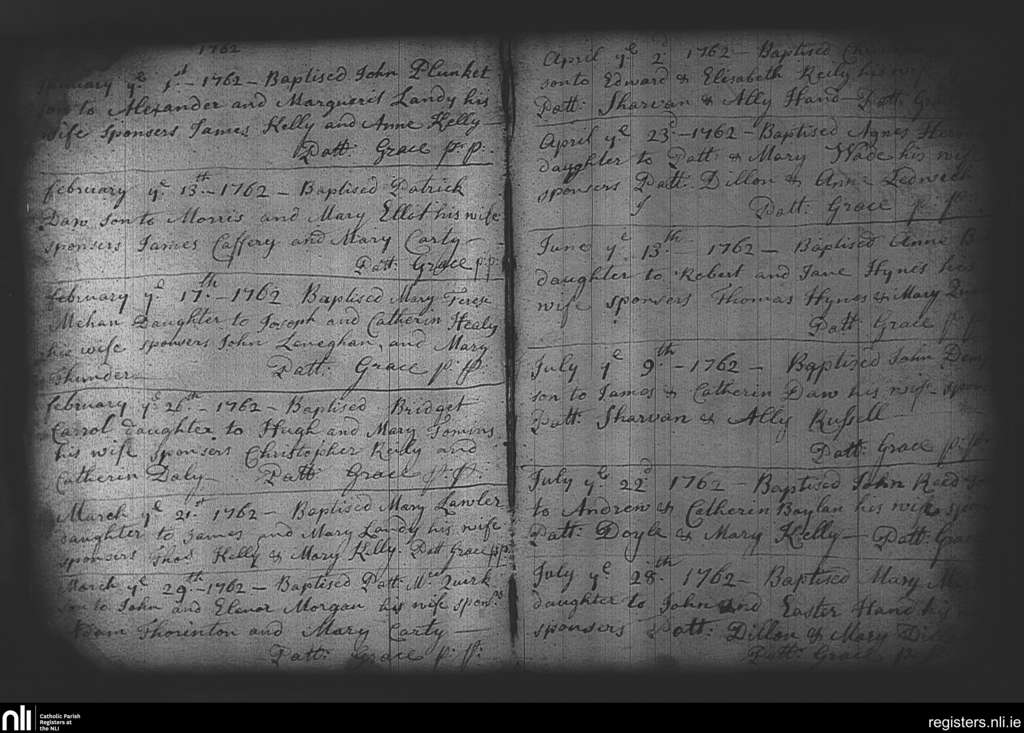 1762
January ye 1st - 1762 - Baptised John Plunket
son to Alexander and Marguerit Landy his
wife sponsers James Kelly and Anne Kelly -
Patt: Grace p: p:
february ye 13th - 1762 - Baptised Patrick
Daw son to Morris and Mary Elliot his wife
sponsers James Caffery and Mary Carty -
Patt: Grace p: p:
february ye 17th - 1762 Baptised Mary Terese
Mehan Daughter to Joseph and Catherin Healy
his wife sponsers John Leneghan, and Mary
Thunder -
Patt: Grace p: p:
february ye 26th - 1762 - Baptised Bridget
Carrol daughter to Hugh and Mary Tomins
his wife sponsers Christopher Reilly and
Catherin Daly - Patt: Grace p: p:
March ye 21st 1762 - Baptised Mary Lawler
daughter to James and Mary Landy his wife
sponsers Thos Kelly & Mary Kelly. Patt Grace p: p:
March ye 29th - 1762 - Baptised Patt: Mc Quirk
son to John and Elenor Morgan his wife sponrs
Adam Thorinton and Mary Carty -
Patt: Grace p: p:
April ye 2d 1762 - Baptised
son to Edward & Elesabeth Reily his wife
Patt: Sharvan & Ally Hand - Patt: Grace
April ye 23d - 1762 - Baptised Agnes
daughter to Patt: & Mary Wade his wife
sponsers Patt: Dillon & Anne
Patt: Grace p: p:
June ye 13th 1762 - Baptised Anne
daughter to Robert and Jane Hynes his
wife sponsers Thomas Hynes & Mary
Patt: Grace p: p:
July ye 9th - 1762 - Baptised John
son to James & Catherin Daw his wife
Patt: Sharvan & Ally Russell
Patt: Grace p: p:
July ye 22d 1762 - Baptised John Reed
to Andrew & Catherin Boylan his wife
Patt: Doyle & Mary Kelly - Patt: Grace
July ye 28th 1762 - Baptised Mary
daughter to John and Easter Hand his
sponsers Patt: Dillon & Mary
Patt: Grace p: p:
nli
Catholic Parish
Registers at
the NLI
registers.nli.ie